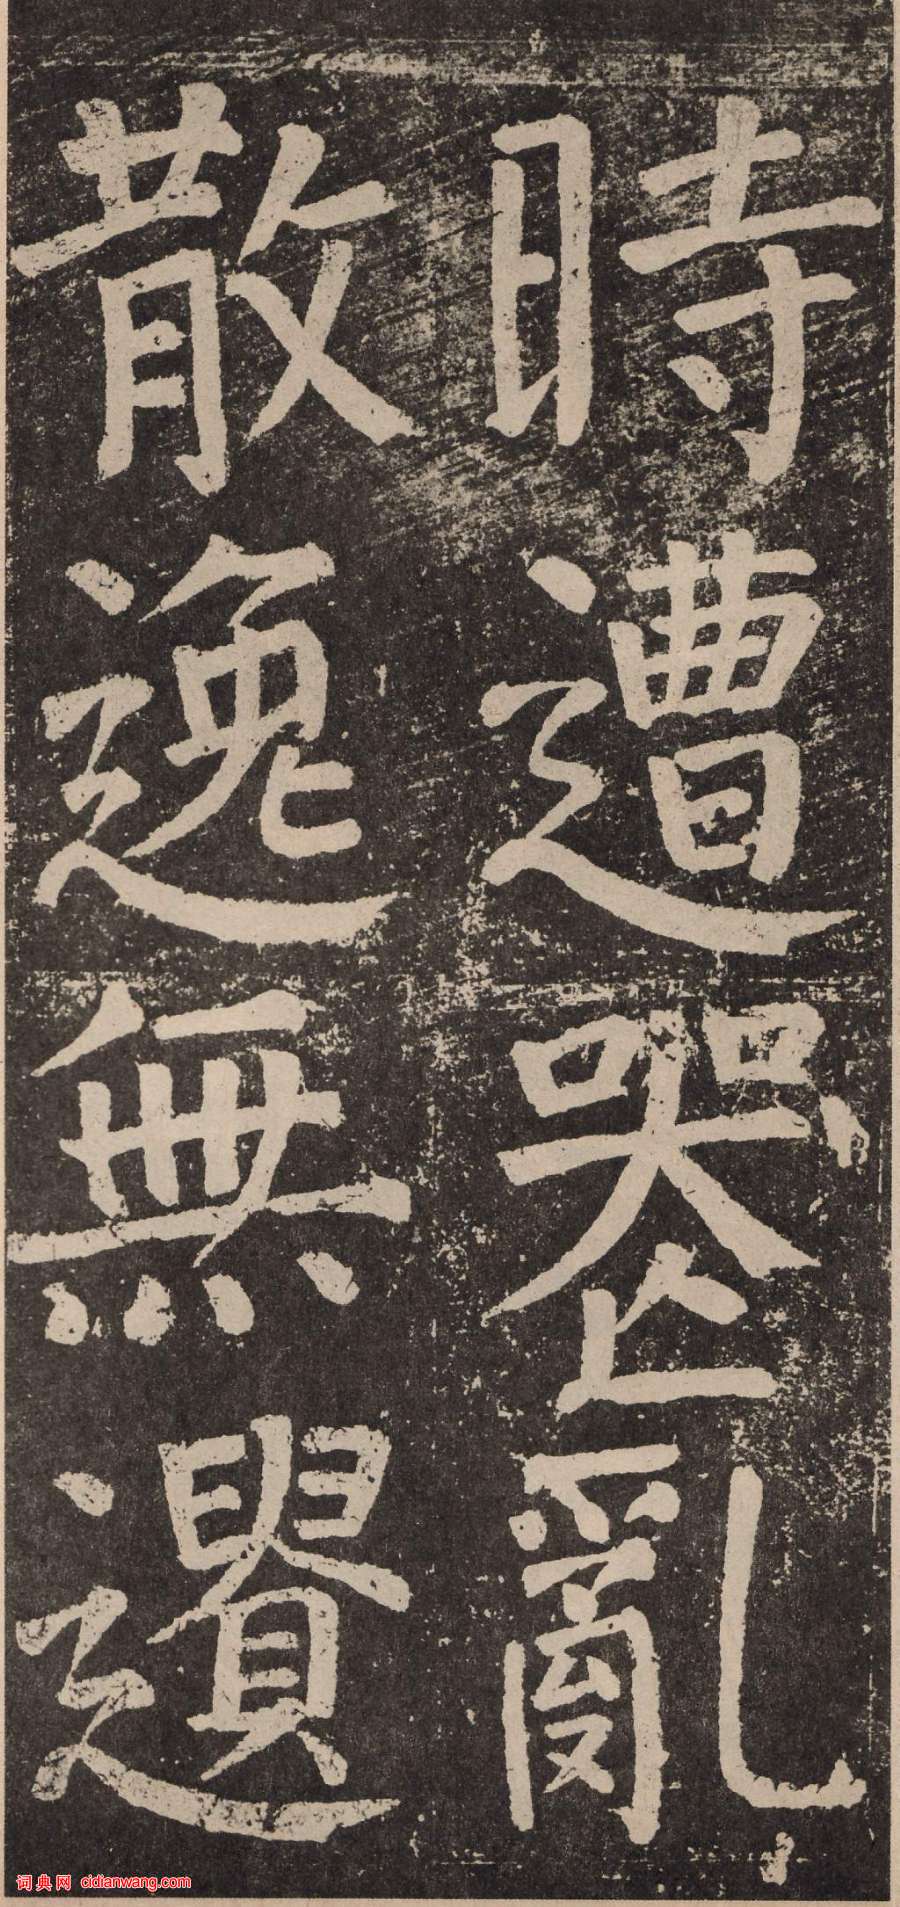 時遭喪亂
散逸無遺
词典网 cidianwang.com